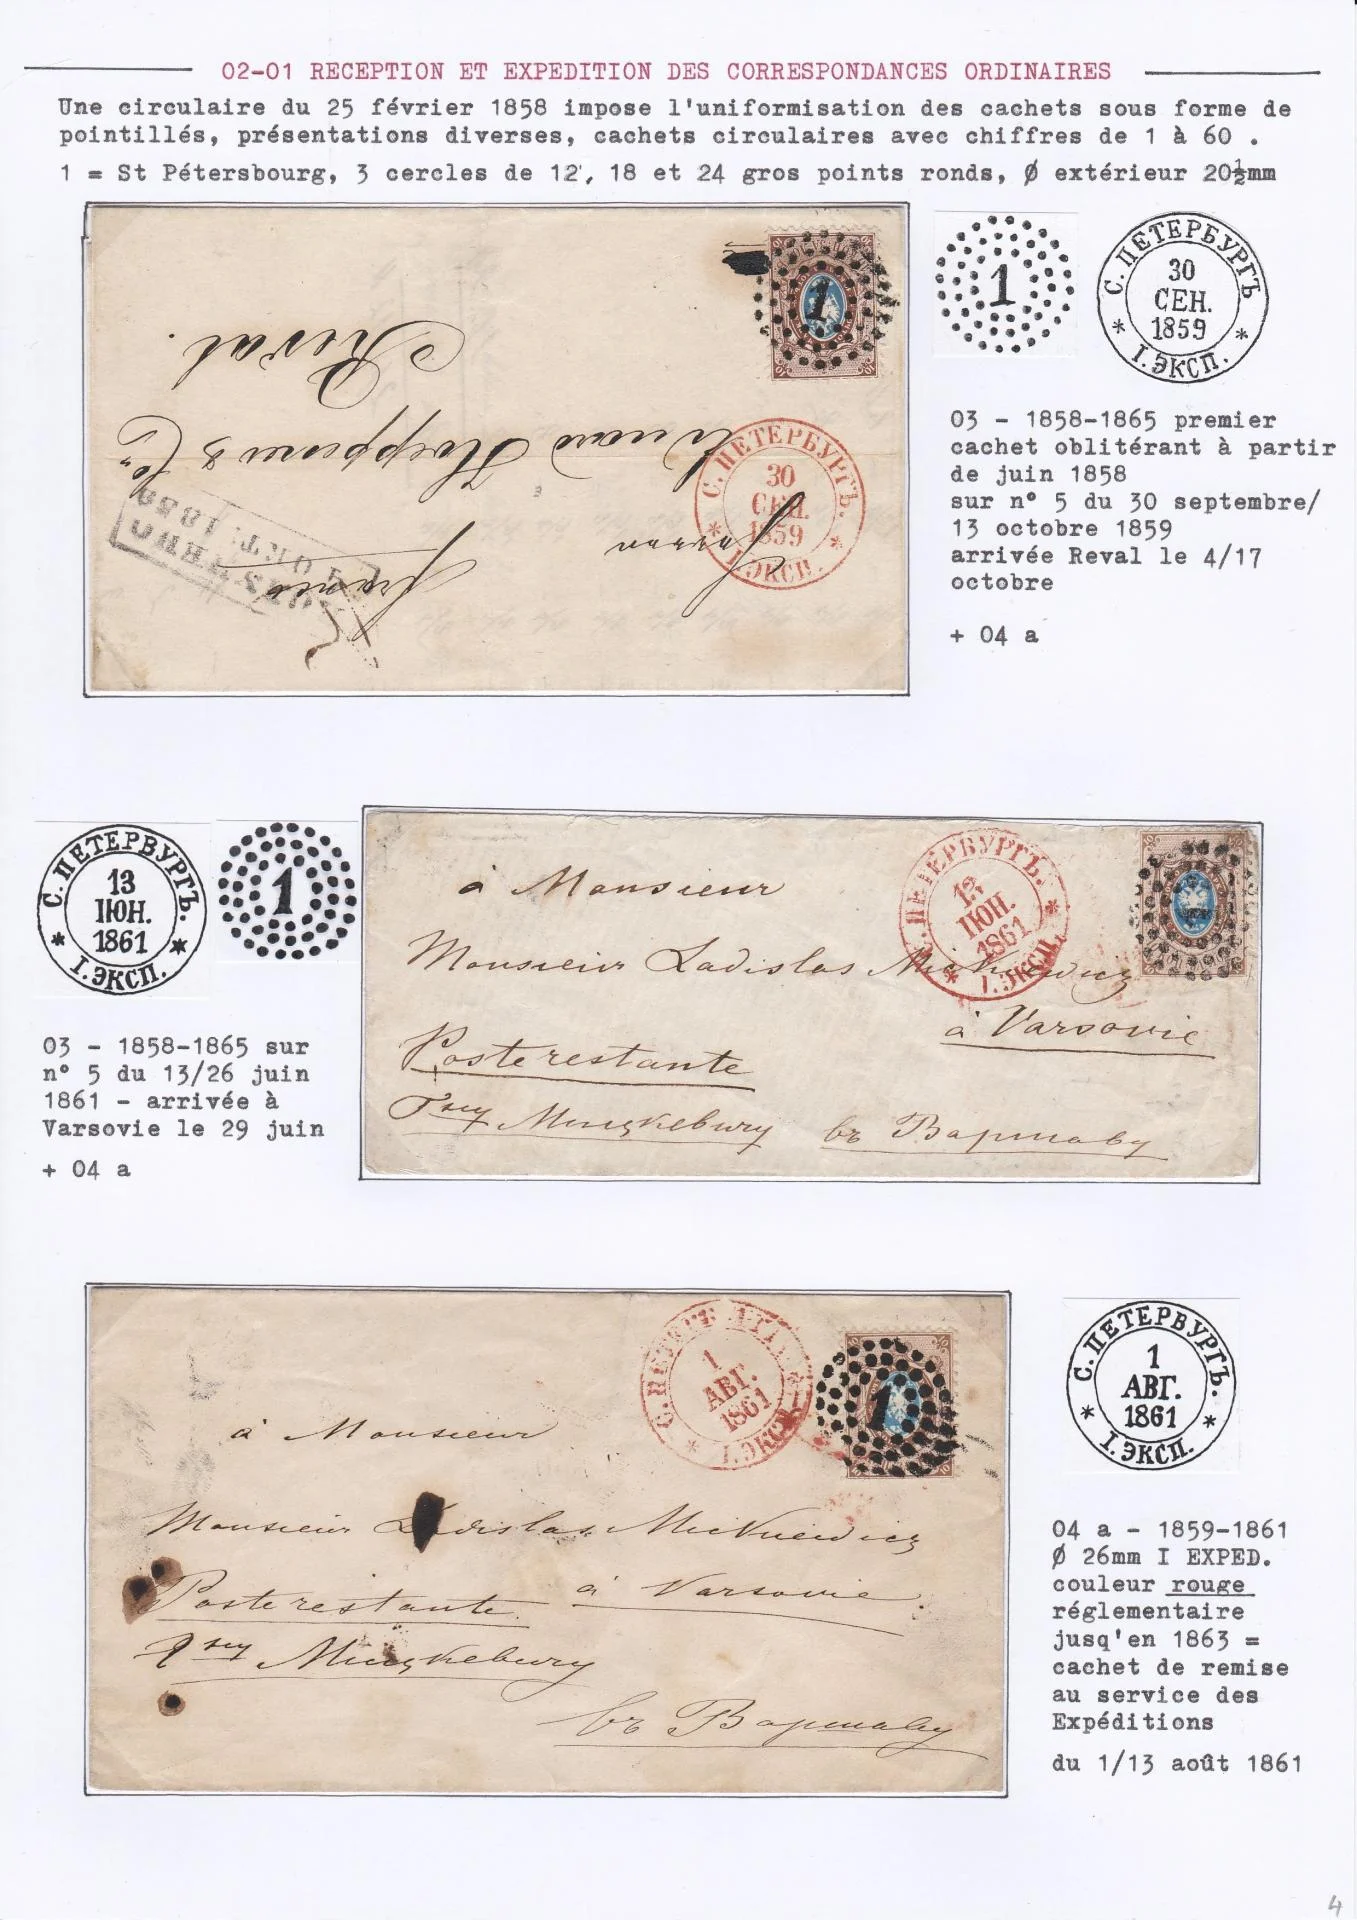 02-01 RECEPTION ET EXPEDITION DES CORRESPONDANCES ORDINAIRES
Une circulaire du 25 février 1858 impose l'uniformisation des cachets sous forme de
pointillés, présentations diverses, cachets circulaires avec chiffres de 1 à 60 .
1 = St Pétersbourg, 3 cercles de 12, 18 et 24 gros points ronds, Ø extérieur 20½mm
1
С. ПЕТЕРБУРГЪ
30
СЕН.
1859
* I. ЭКСП. *
1
С. ПЕТЕРБУРГЪ.
30
СЕН.
1859
* I. ЭКСП. *
Reval.
franco
ОКТ. 1859
03 - 1858-1865 premier
cachet oblitérant à partir
de juin 1858
sur n° 5 du 30 septembre/
13 octobre 1859
arrivée Reval le 4/17
octobre
+ 04 a
С. ПЕТЕРБУРГЪ.
13
IЮН.
1861
* I. ЭКСП. *
1
03 - 1858-1865 sur
n° 5 du 13/26 juin
1861 - arrivée à
Varsovie le 29 juin
+ 04 a
С. ПЕТЕРБУРГЪ.
IЮН.
1861
* I. ЭКСП. *
à Monsieur
Monsieur Ladislas Mickiewicz
à Varsovie
Poste restante
въ Варшаву
С. ПЕТЕРБУРГЪ.
1
АВГ.
1861
* I. ЭКСП. *
1
à Monsieur
Monsieur Ladislas Mickiewicz
à Varsovie.
Poste restante
въ Варшаву
С. ПЕТЕРБУРГЪ.
1
АВГ.
1861
* I. ЭКСП. *
04 a - 1859-1861
Ø 26mm I EXPED.
couleur rouge
réglementaire
jusqu'en 1863 =
cachet de remise
au service des
Expéditions
du 1/13 août 1861
4